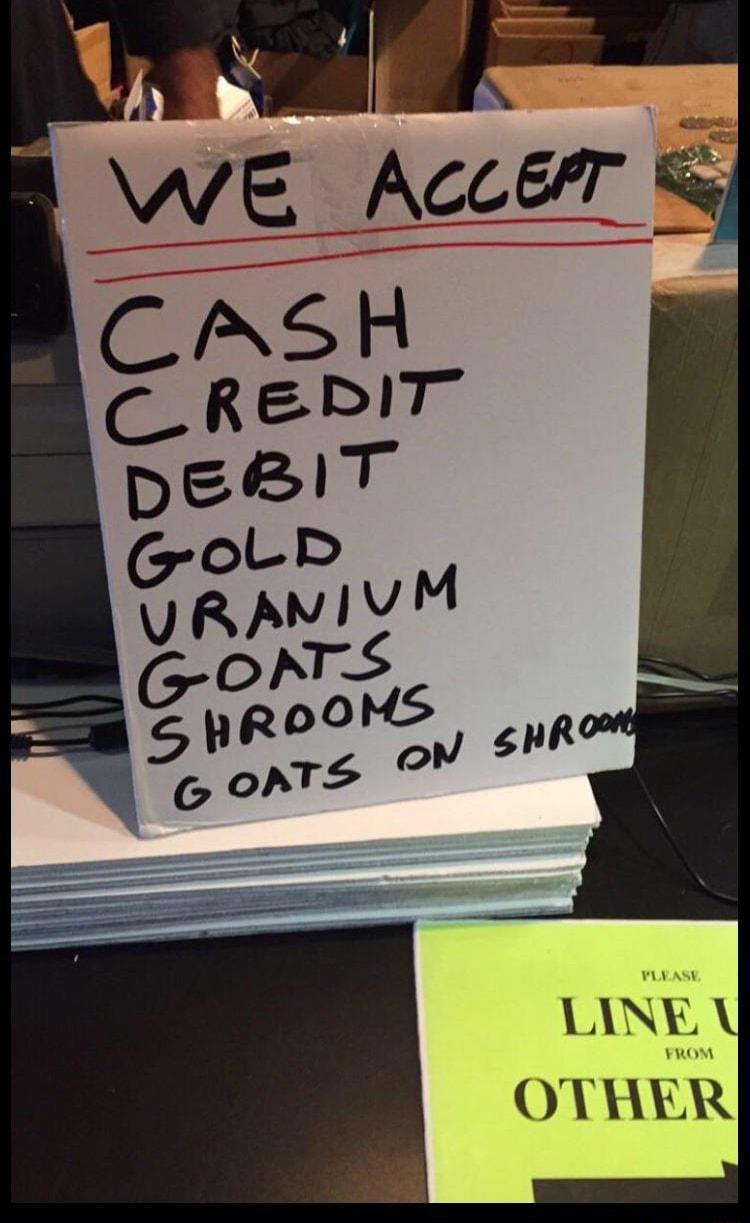 WE ACCEPT
CASH
CREDIT
DEBIT
GOLD
URANIUM
GOATS
SHROOMS
GOATS ON SHROOMS
PLEASE
LINE U
FROM
OTHER